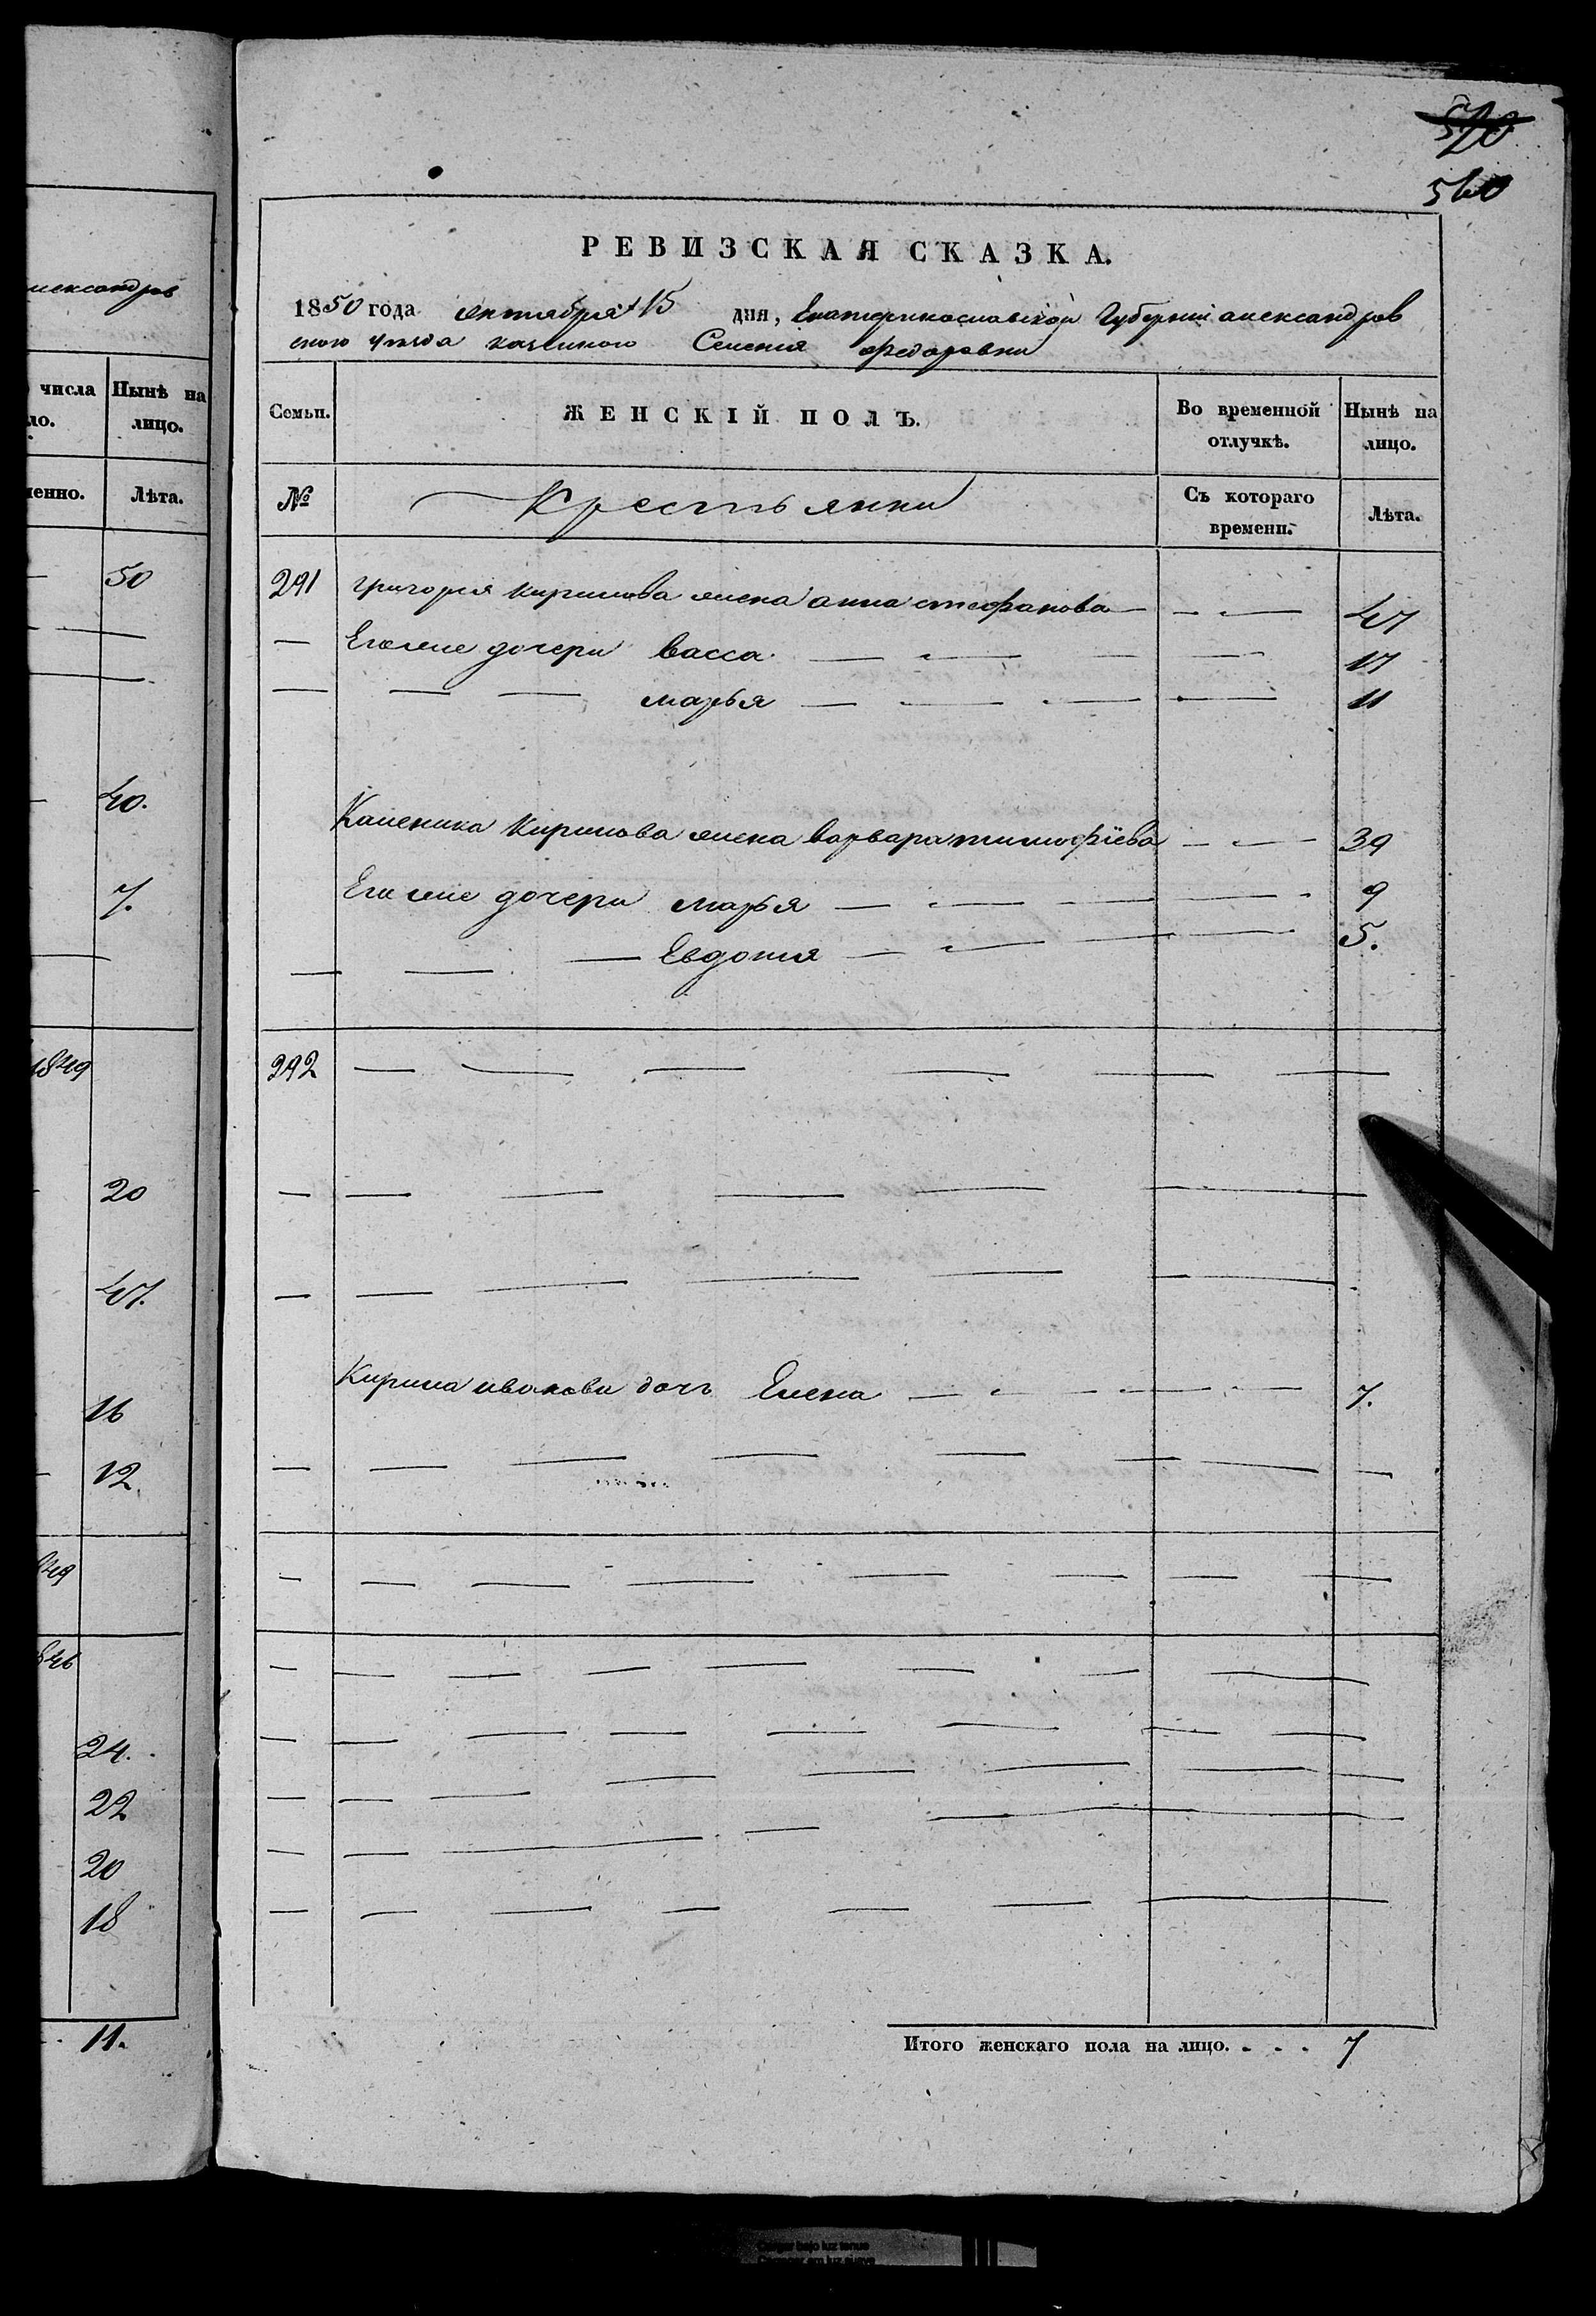 520
560
РЕВИЗСКАЯ СКАЗКА.
1850 года октября 15 дня, Екатеринославской Губерніи александров
ского уезда казенного Селения федоровки
Семьи. ЖЕНСКІЙ ПОЛЪ. Во временной отлучкѣ. Нынѣ на лицо.
№ Крестьянки Съ котораго времени. Лѣта.
291 григория кирилова жена анна стефанова 47
Его же дочери васса 17
марья 11
Калиника Кирилова жена варвара тимофіева 39
Его же дочери марья 9
Евдокия 5.
292
Кирила иванова дочь Елена 7.
Итого женскаго пола на лицо. . . . 7
александров
числа Нынѣ на
ло. лицо.
менно. Лѣта.
50
40.
7.
1849
20
47.
16
12
849
846
24.
22
20
18
11.